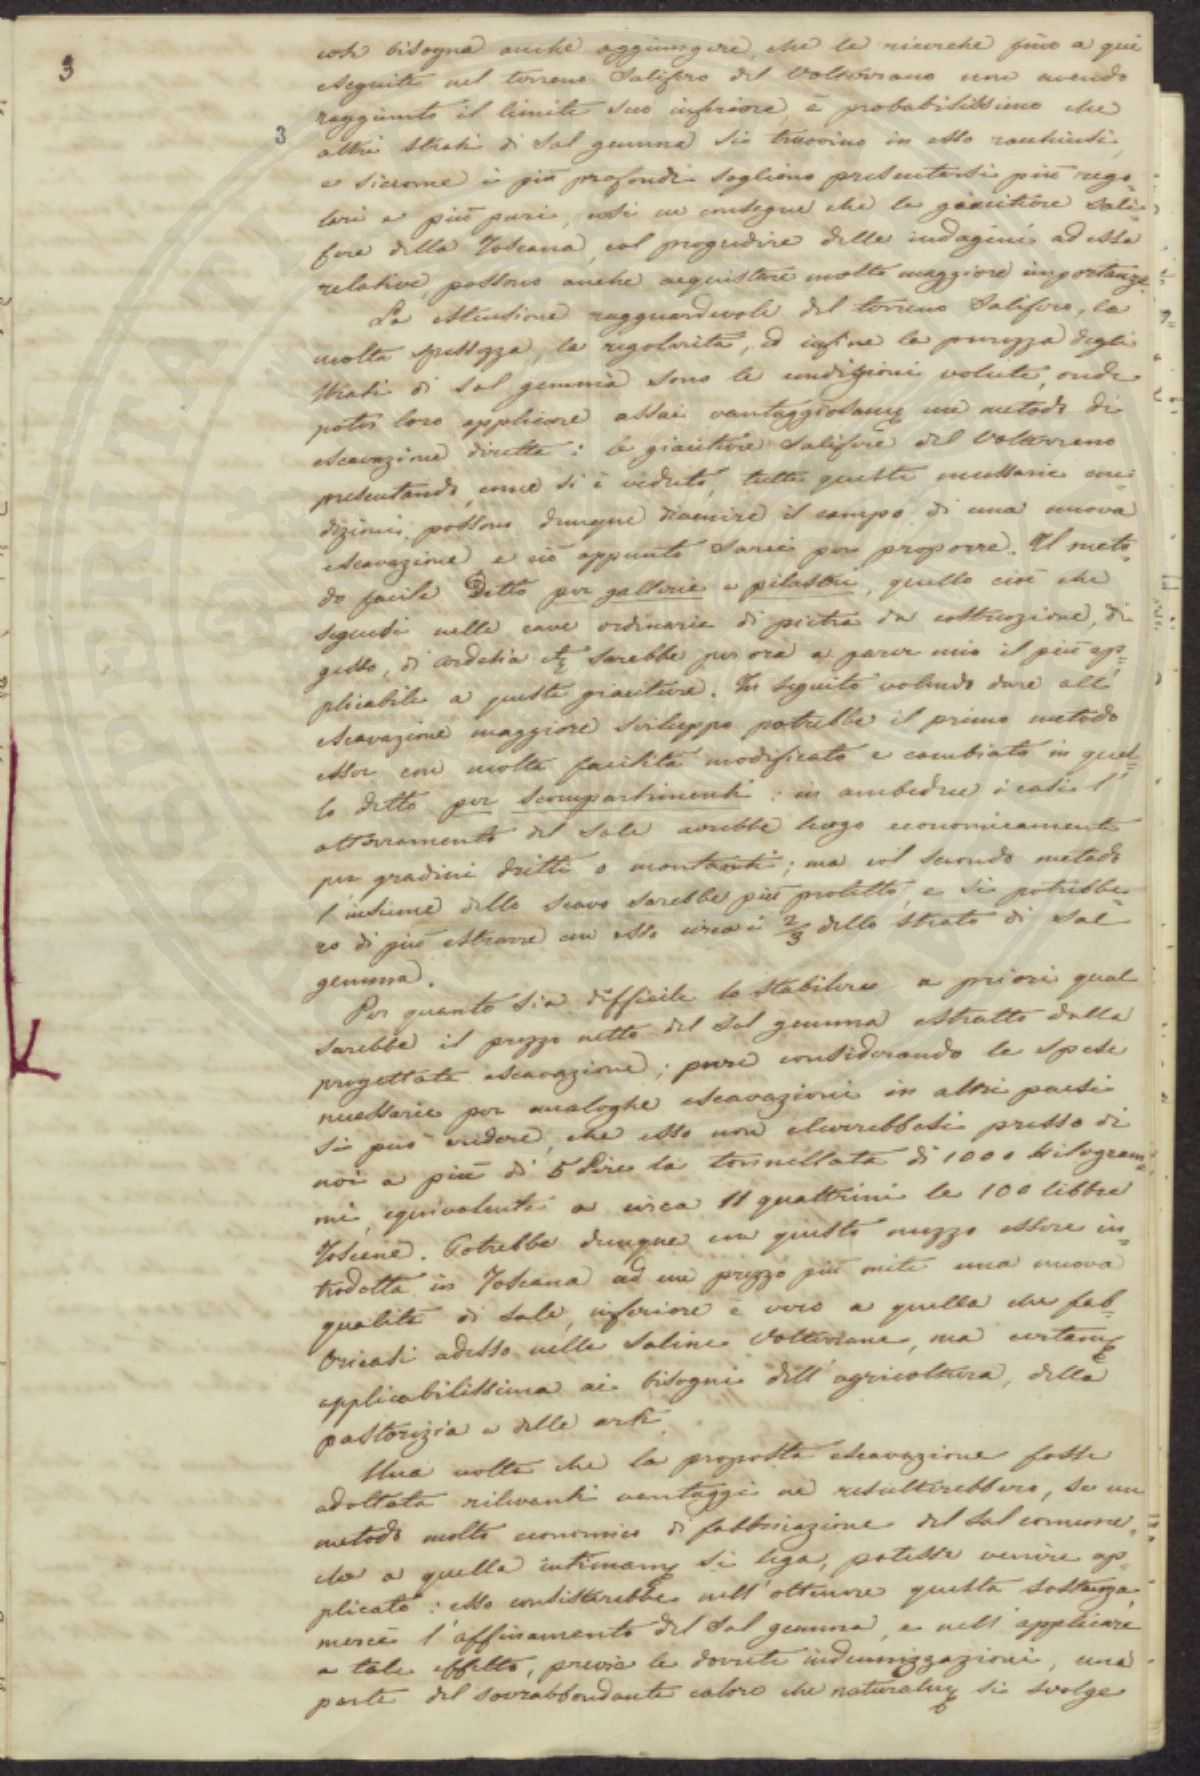 3
3
così bisogna anche aggiungere, che le ricerche fino a qui
eseguite nel terreno Salifero del Volterrano non avendo
raggiunto il limite suo inferiore, è probabilissimo che
altri strati di Sal gemma si truovino in esso racchiusi,
e siccome i più profondi sogliono presentarsi più rego=
lari e più puri, così ne consegue che le giaciture Sali=
fere della Toscana, col progredire delle indagini ad esse
relative, possono anche acquistare molto maggiore importanza.
La estensione ragguardevole del terreno Salifero, la
molta spessezza, la regolarità, ed infine la purezza degli
strati di Sal gemma sono le condizioni volute, onde
poter loro applicare assai vantaggiosamᵉ un metodo di
escavazione diretta: le giaciture Salifere del Volterrano
presentando, come si è veduto, tutte queste necessarie con=
dizioni, possono dunque divenire il campo di una nuova
escavazione e ciò appunto sarei per proporre. Il meto=
do facile Detto per gallerie e pilastri, quello cioè che
seguesi nelle cave ordinarie di pietra da costruzione, di
gesso, di ardesia etc sarebbe per ora a parer mio il più ap=
plicabile a queste giaciture. In seguito volendo dare all'
escavazione maggiore sviluppo potrebbe il primo metodo
esser con molta facilità modificato e cambiato in quel=
lo detto per scompartimenti: in ambedue i casi l'
atterramento del Sale avrebbe luogo economicamente
per gradini dritti o montanti; ma col secondo metodo
l'insieme dello scavo sarebbe più protetto, e si potrebbe=
ro di più estrarre con esso circa i 2/3 dello strato di Sal
gemma.
Per quanto sia difficile lo stabilire a priori qual
sarebbe il prezzo netto del Sal gemma estratto dalla
progettata escavazione; pure considerando le spese
necessarie per analoghe escavazioni in altri paesi
si può credere, che esso non eleverebbesi presso di
noi a più di 5 Lire la tonnellata di 1000 Kilogram=
mi, equivalenti a circa 11 quattrini le 100 libbre
Toscane. Potrebbe dunque con questo mezzo essere in=
trodotta in Toscana ad un prezzo più mite una nuova
qualità di Sale, inferiore è vero a quella che fab=
bricasi adesso nelle Saline Volterrane, ma certamᵉ
applicabilissima ai bisogni dell'agricoltura, della
pastorizia e delle arti.
Una volta che la proposta escavazione fosse
adottata rilevanti vantaggi ne resulterebbero, se un
metodo molto economico di fabbricazione del Sal comune,
che a quella intimamᵉ si lega, potesse venire ap=
plicato: esso consisterebbe nell'ottenere questa sostanza,
mercè l'affinamento del Sal gemma, e nell'applicare
a tale effetto, previe le dovute indennizzazioni, una
parte del sovrabbondante calore che naturalmᵉ si svolge